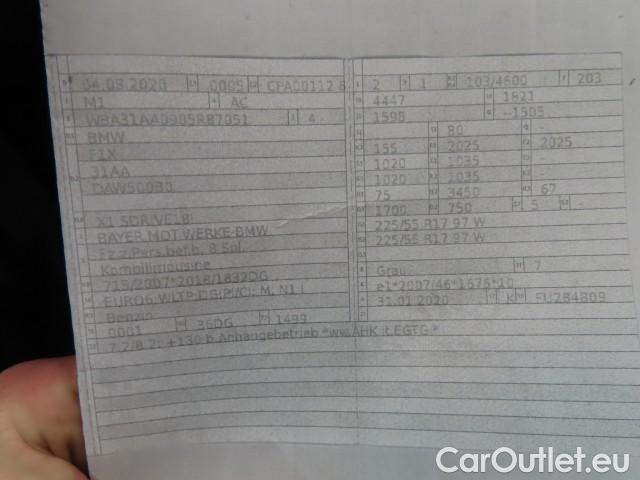 04.08.2020 0005 CPA00112 8
M1 AC
WBA31AA0905R87051 4
BMW
F1X
31AA
X1 SDRIVE18I
BAYER.MOT.WERKE-BMW
Fz.z.Pers.bef.b. 8 Spl.
Kombilimousine
715/2007*2018/1832DG
EURO6 WLTP;DG;PI/CI; M, N1 I
Benzin
0001 36DG 1499
7.2/8.2: +130 b.Anhängebetrieb *ww.AHK lt.EGTG.*
2 1 103/4600 203
4447 1821
1598 -1505
80 -
155 2025 2025
1020 1035 -
1020 1035 -
75 3450 67
1700 750 5 -
225/55 R17 97 W
225/55 R17 97 W
Grau 7
e1*2007/46*1676*10
31.01.2020 K
CarOutlet.eu